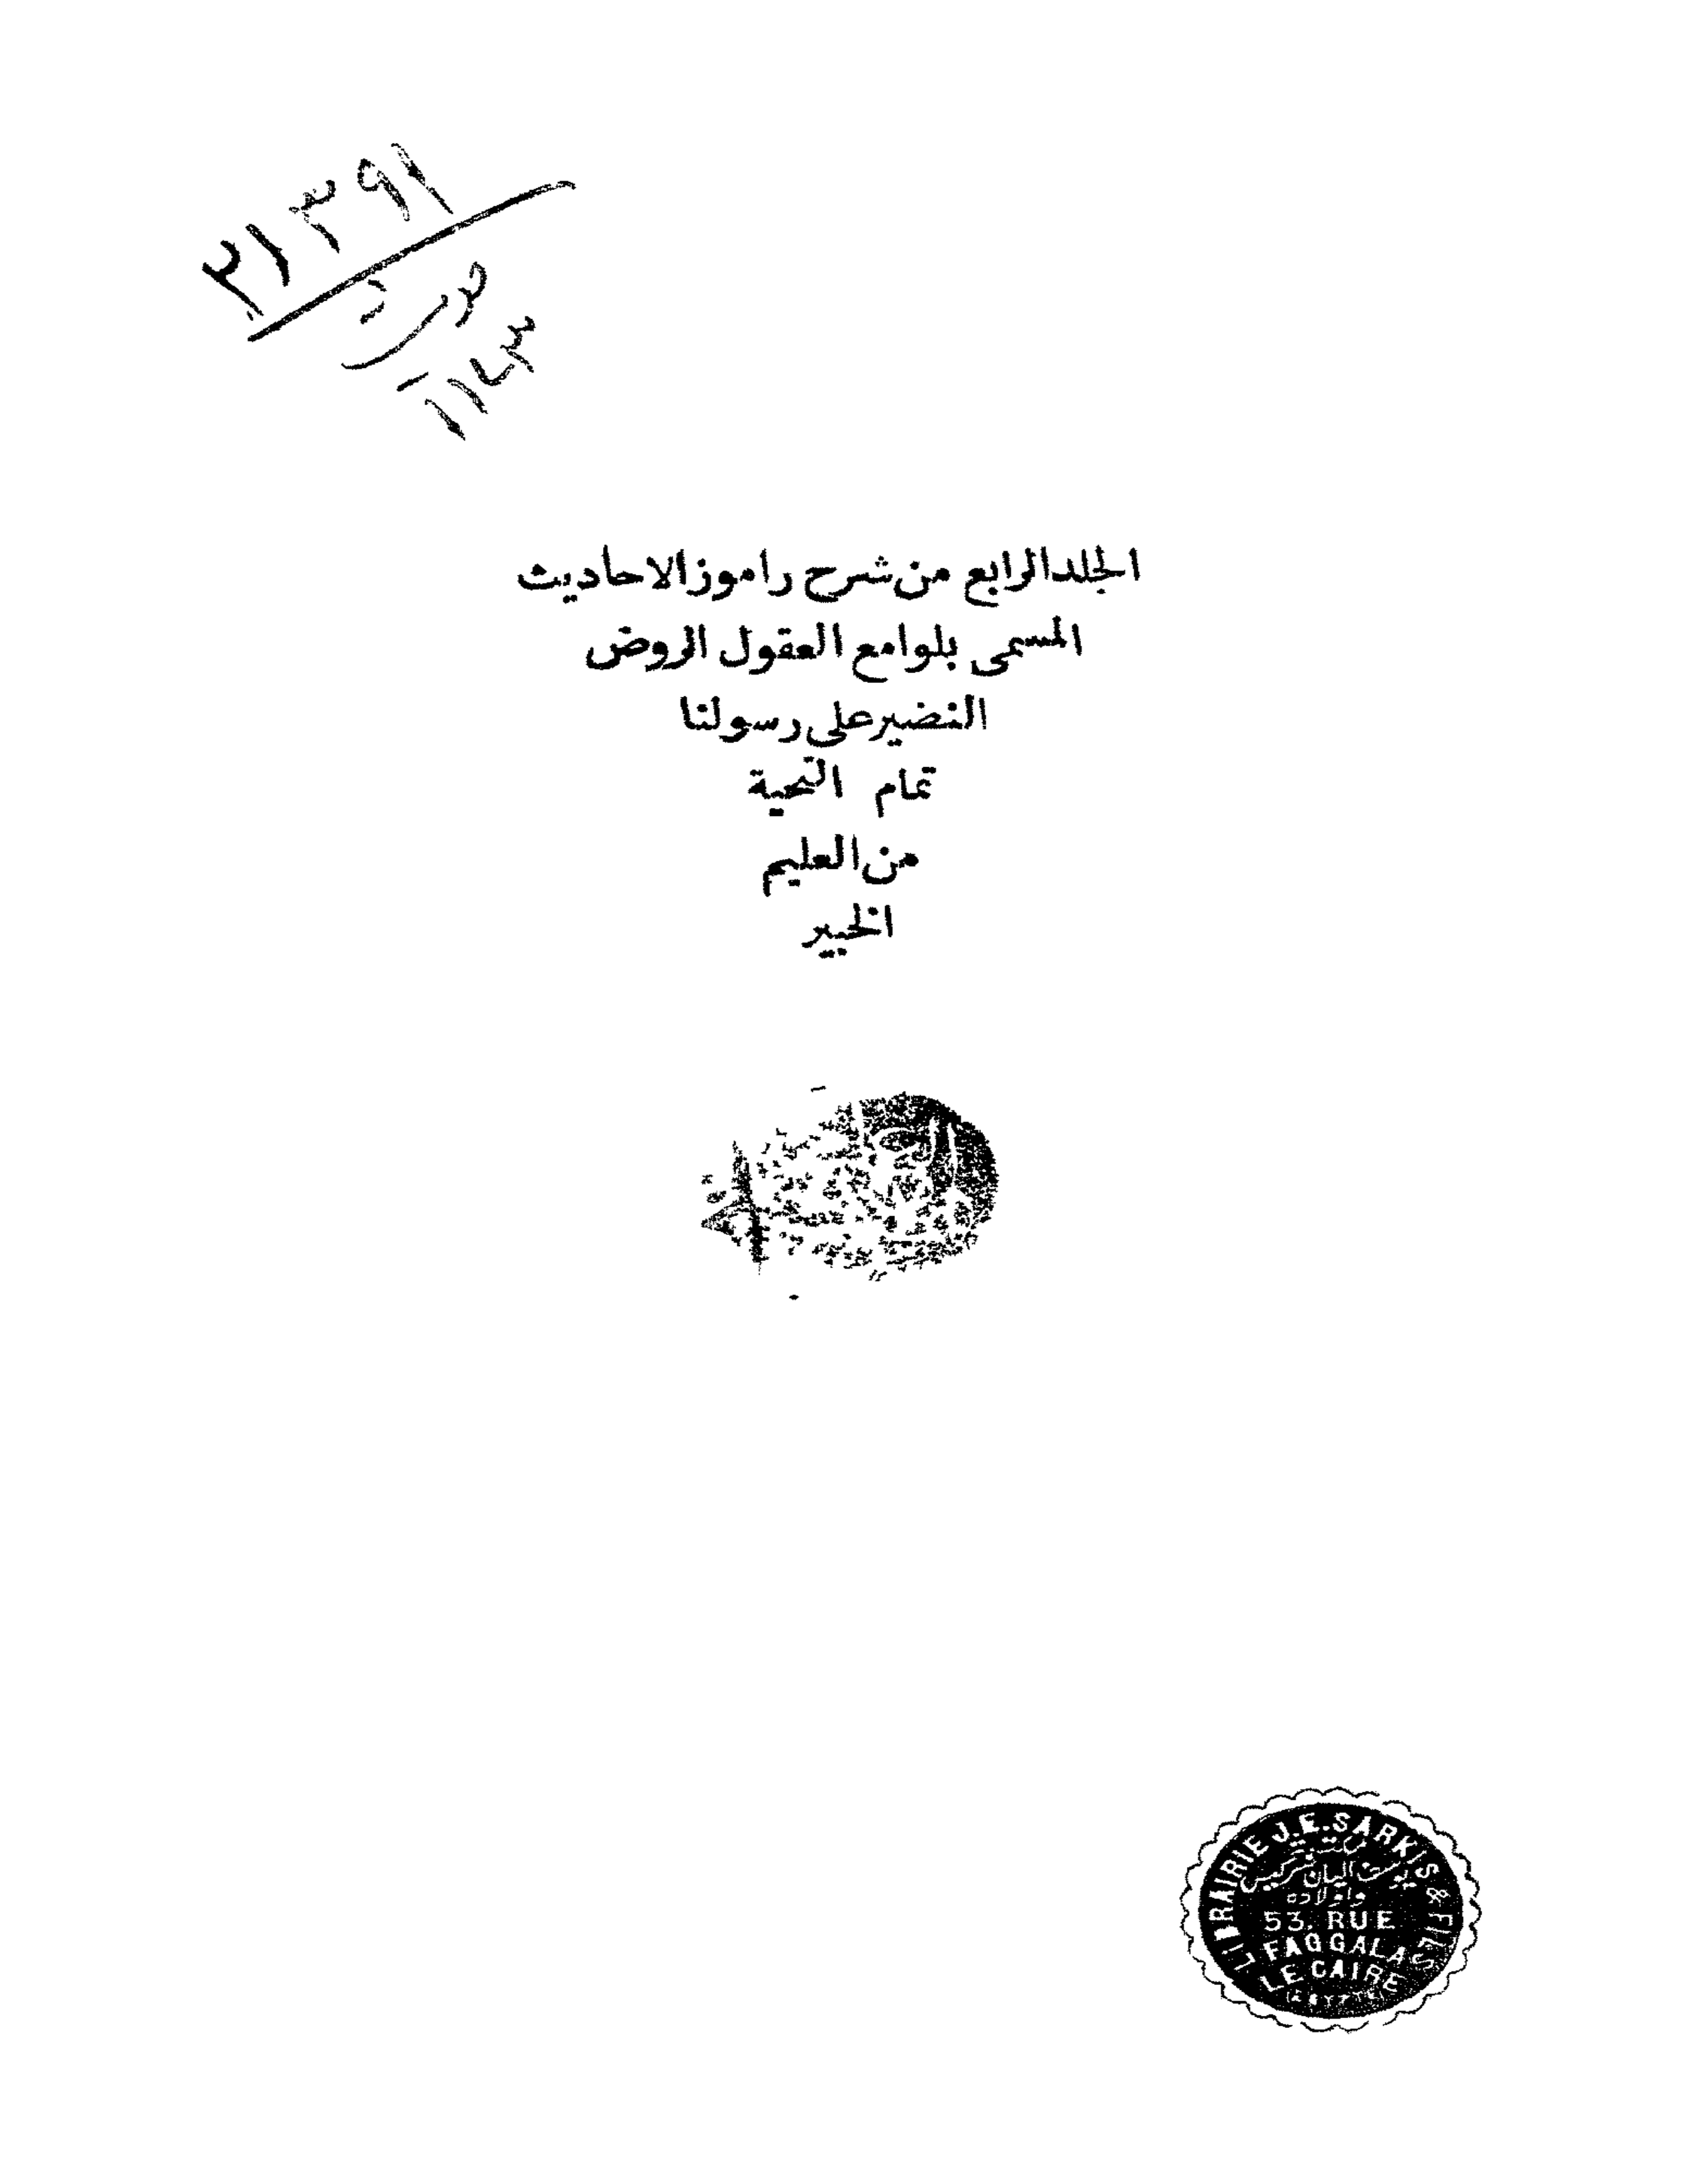 ٢١٣٩١
حديث
١١٤٣
الجلد الرابع من شرح راموز الاحاديث
المسمى بلوامع العقول الروض
النضير على رسولنا
تمام التحية
من العليم
الخبير
LIBRAIRIE J.E. SARKIS & FILS
يوسف اليان سركيس
واولاده
53, RUE
FAGGALA
LE CAIRE
(EGYPTE)